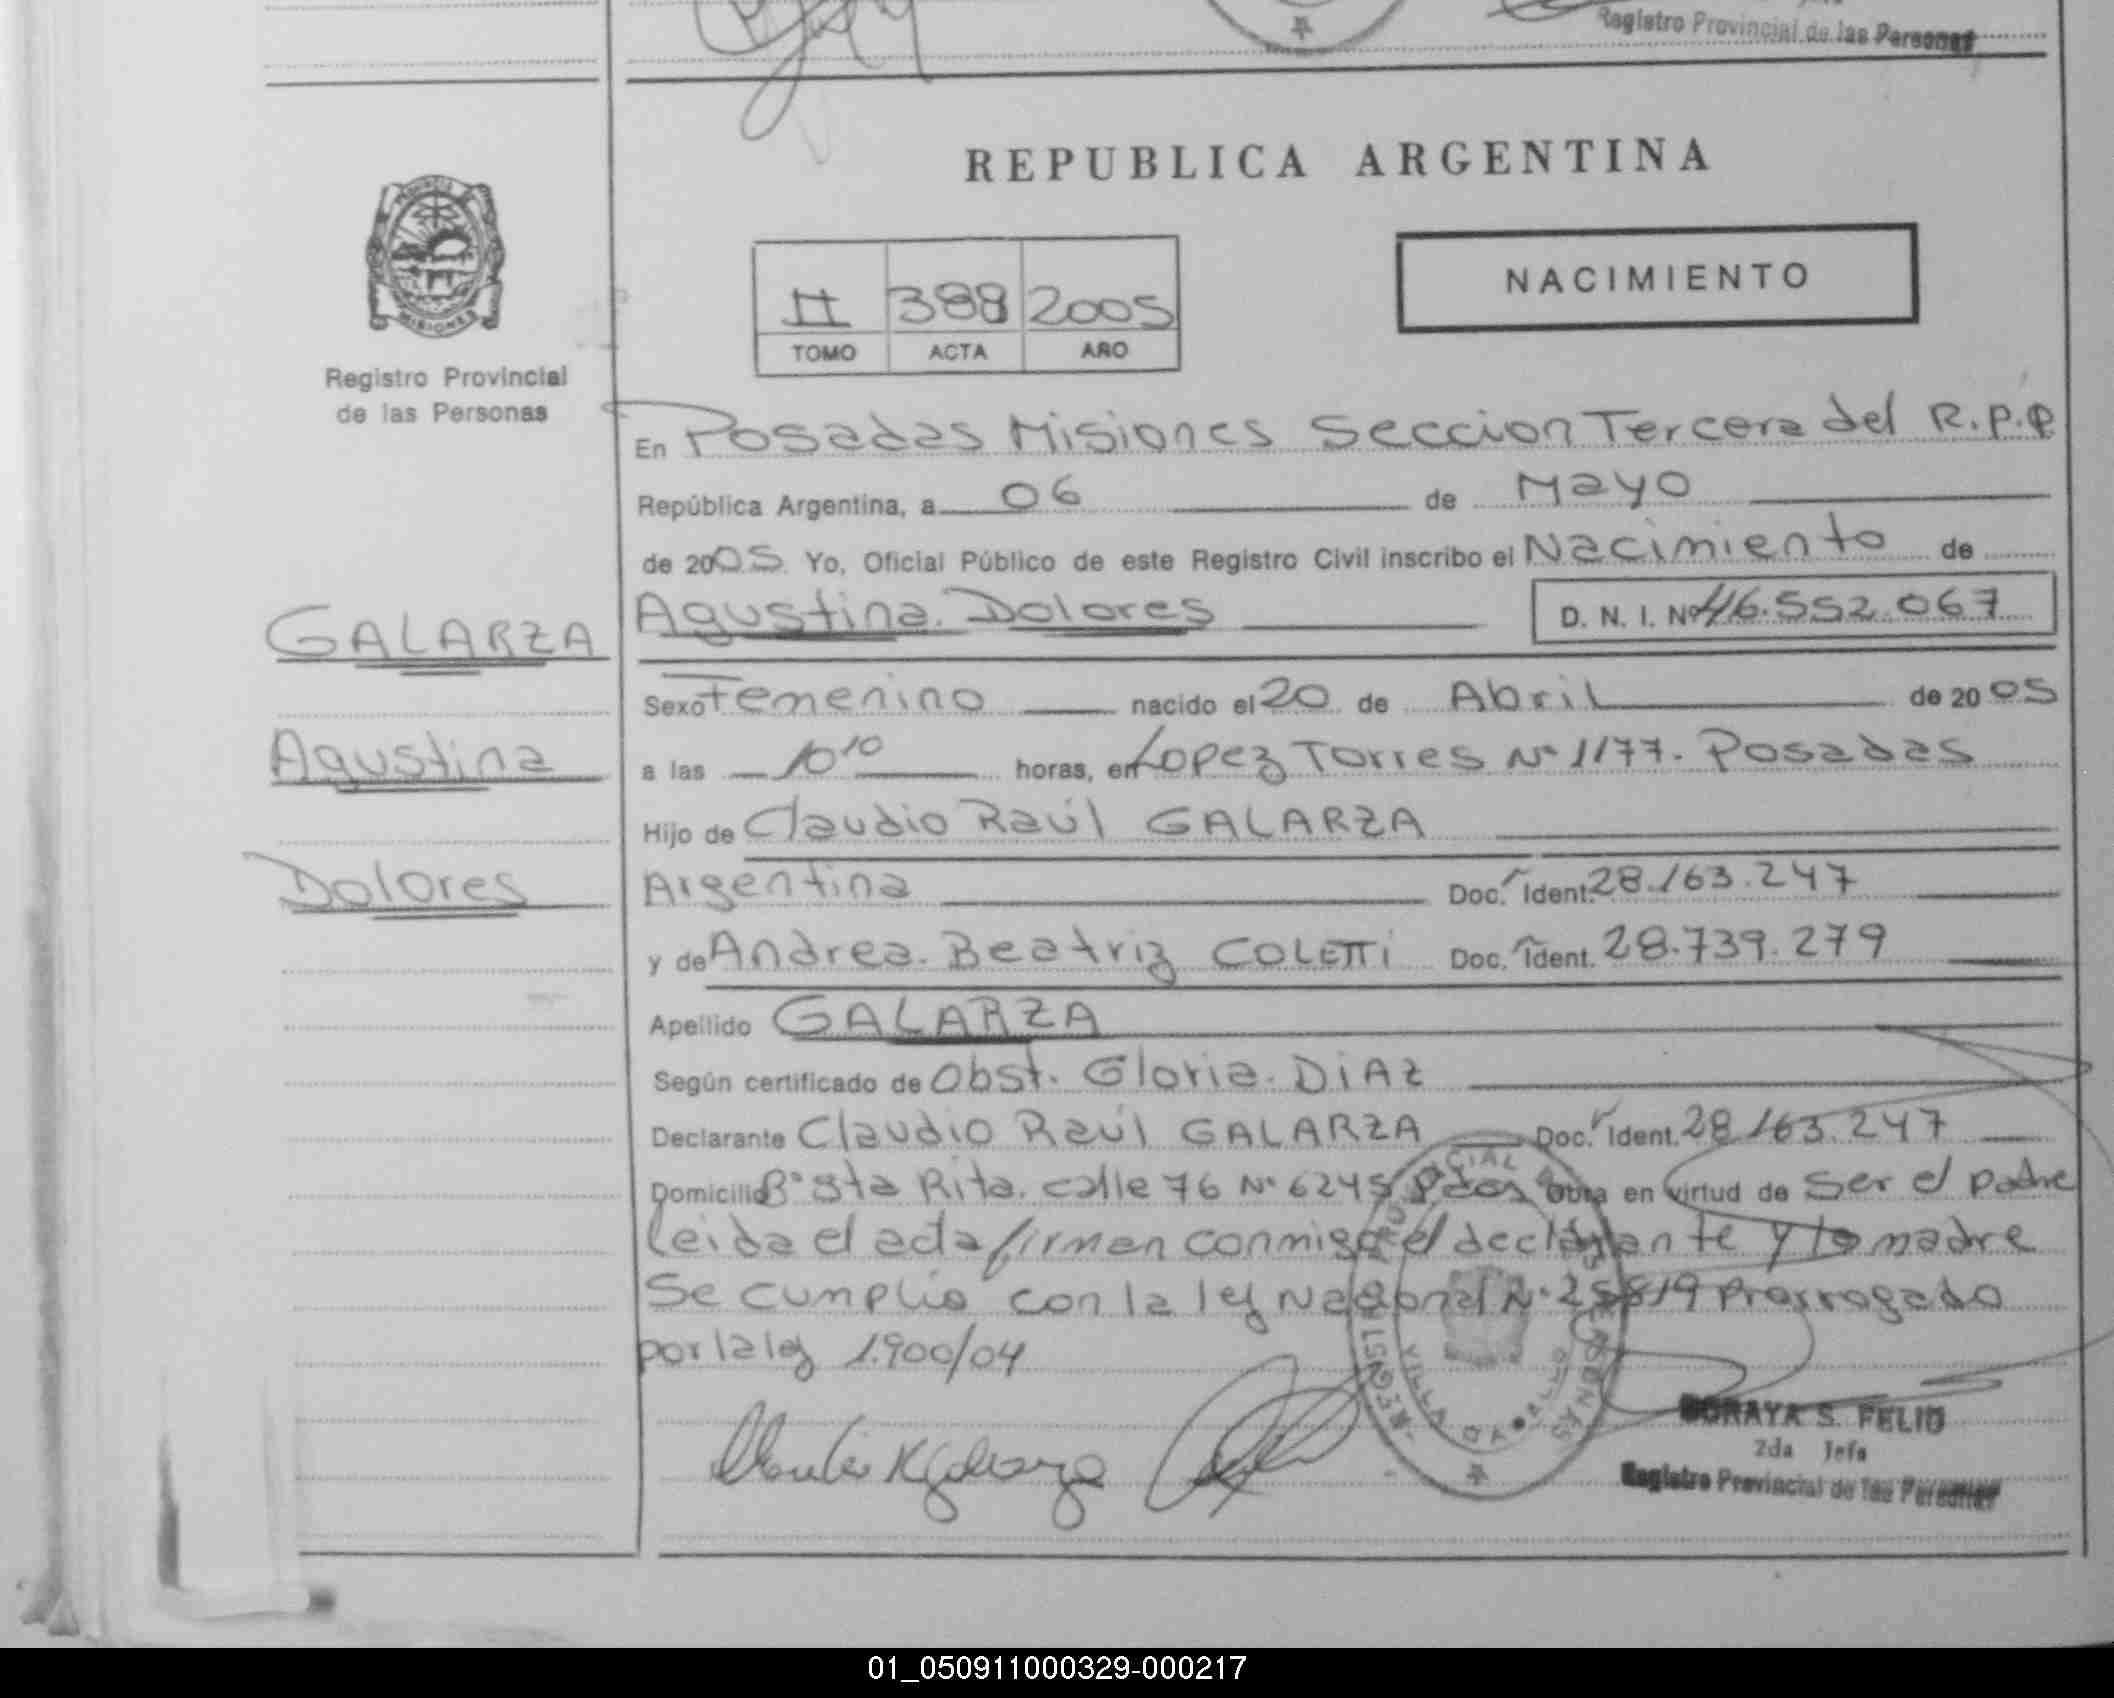 Registro Provincial de las Personas
REPUBLICA ARGENTINA
MISIONES
Registro Provincial
de las Personas
II 388 2005
TOMO ACTA AÑO
NACIMIENTO
En Posadas Misiones Seccion Tercera del R.P.P
República Argentina, a 06 de Mayo
de 2005. Yo, Oficial Público de este Registro Civil inscribo el Nacimiento de
GALARZA
Agustina
Dolores
Agustina. Dolores D. N. I. Nº 46.552.067
Sexo Femenino nacido el 20 de Abril de 2005
a las 10¹⁰ horas, en Lopez Torres Nº 1177. Posadas
Hijo de Claudio Raúl GALARZA
Argentina Doc. Ident. 28.163.247
y de Andrea. Beatriz COLETTi Doc. Ident. 28.739.279
Apellido GALARZA
Según certificado de Obst. Gloria. DiAZ
Declarante Claudio Raúl GALARZA Doc. Ident. 28.163.247
Domicilio Bº Sta Rita. calle 76 Nº 6245 Pdas Obra en virtud de Ser el padre
leida el acta firman conmigo el declarante y la madre
Se cumplio con la ley Nacional Nº 25819 Prorrogado
por la ley 1.900/04
SORAYA S. FELIU
2da Jefa
Registro Provincial de las Personas
01_050911000329-000217